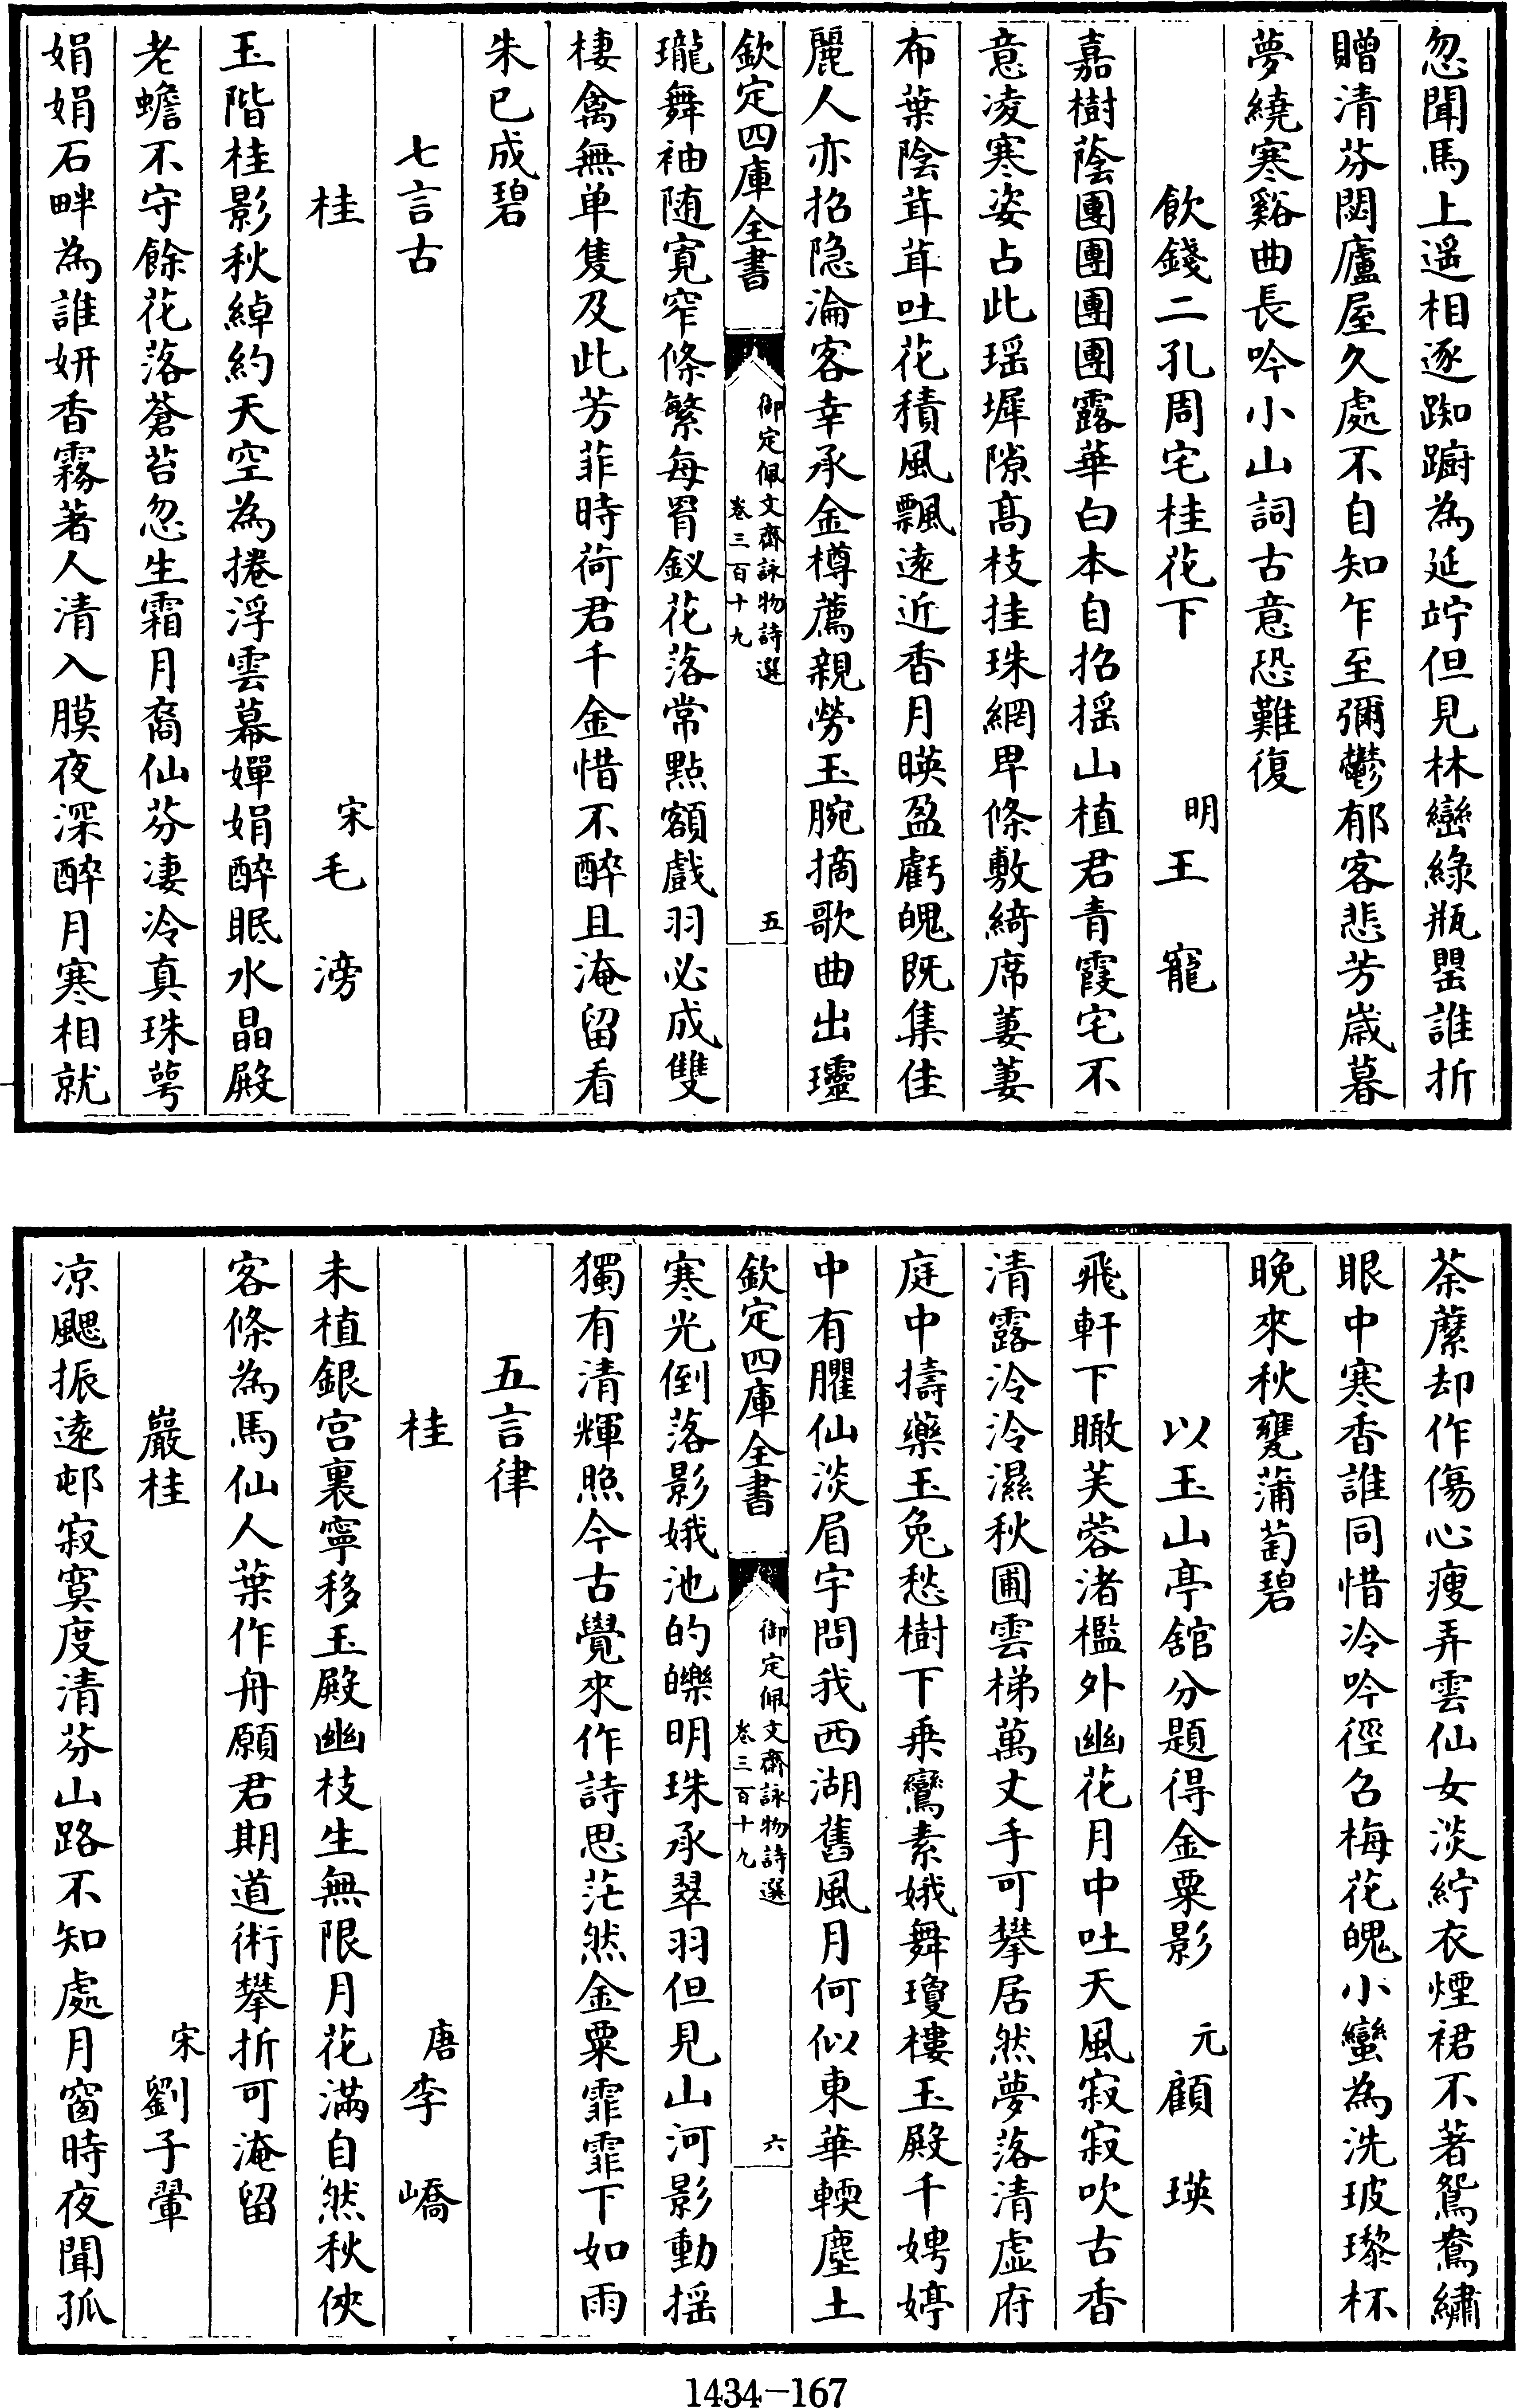 忽聞馬上遥相逐踟蹰為延竚但見林巒綠瓶罌誰折
贈清芬閟廬屋久處不自知乍至彌鬱郁客悲芳嵗暮
夢繞寒谿曲長吟小山詞古意恐難復
飲錢二孔周宅桂花下 明王寵
嘉樹蔭團團團團露華白本自招揺山植君青霞宅不
意凌寒姿占此瑶墀隙髙枝挂珠網卑條敷綺席萋萋
布葉陰茸茸吐花積風飄逺近香月暎盈虧魄既集佳
麗人亦招隐淪客幸承金樽薦親勞玉腕摘歌曲出瓊
欽定四庫全書 御定佩文齋詠物詩選 卷三百十九 五
瓏舞袖随寛窄條繁每罥釵花落常點額戲羽必成雙
棲禽無单隻及此芳菲時荷君千金惜不醉且淹留看
朱已成碧
七言古
桂 宋毛滂
玉階桂影秋綽約天空為捲浮雲幕嬋娟醉眠水晶殿
老蟾不守餘花落蒼苔忽生霜月裔仙芬凄冷真珠萼
娟娟石畔為誰妍香霧著人清入膜夜深醉月寒相就
荼蘼却作傷心瘦弄雲仙女淡紵衣煙裙不著鴛鴦繡
眼中寒香誰同惜冷吟徑召梅花魄小蠻為洗玻瓈杯
晚來秋甕蒲萄碧
以玉山亭舘分題得金粟影 元顧瑛
飛軒下瞰芙蓉渚檻外幽花月中吐天風寂寂吹古香
清露泠泠濕秋圃雲梯萬丈手可攀居然夢落清虚府
庭中擣藥玉兔愁樹下乗鸞素娥舞瓊樓玉殿千娉婷
中有臞仙淡眉宇問我西湖舊風月何似東華輭塵土
欽定四庫全書 御定佩文齋詠物詩選 卷三百十九 六
寒光倒落影娥池的皪明珠承翠羽但見山河影動揺
獨有清輝照今古覺來作詩思茫然金粟霏霏下如雨
五言律
桂 唐李嶠
未植銀宫裏寧移玉殿幽枝生無限月花滿自然秋俠
客條為馬仙人葉作舟願君期道術攀折可淹留
巖桂 宋劉子翬
凉颸振逺邨寂寞度清芬山路不知處月窗時夜聞孤
1434-167